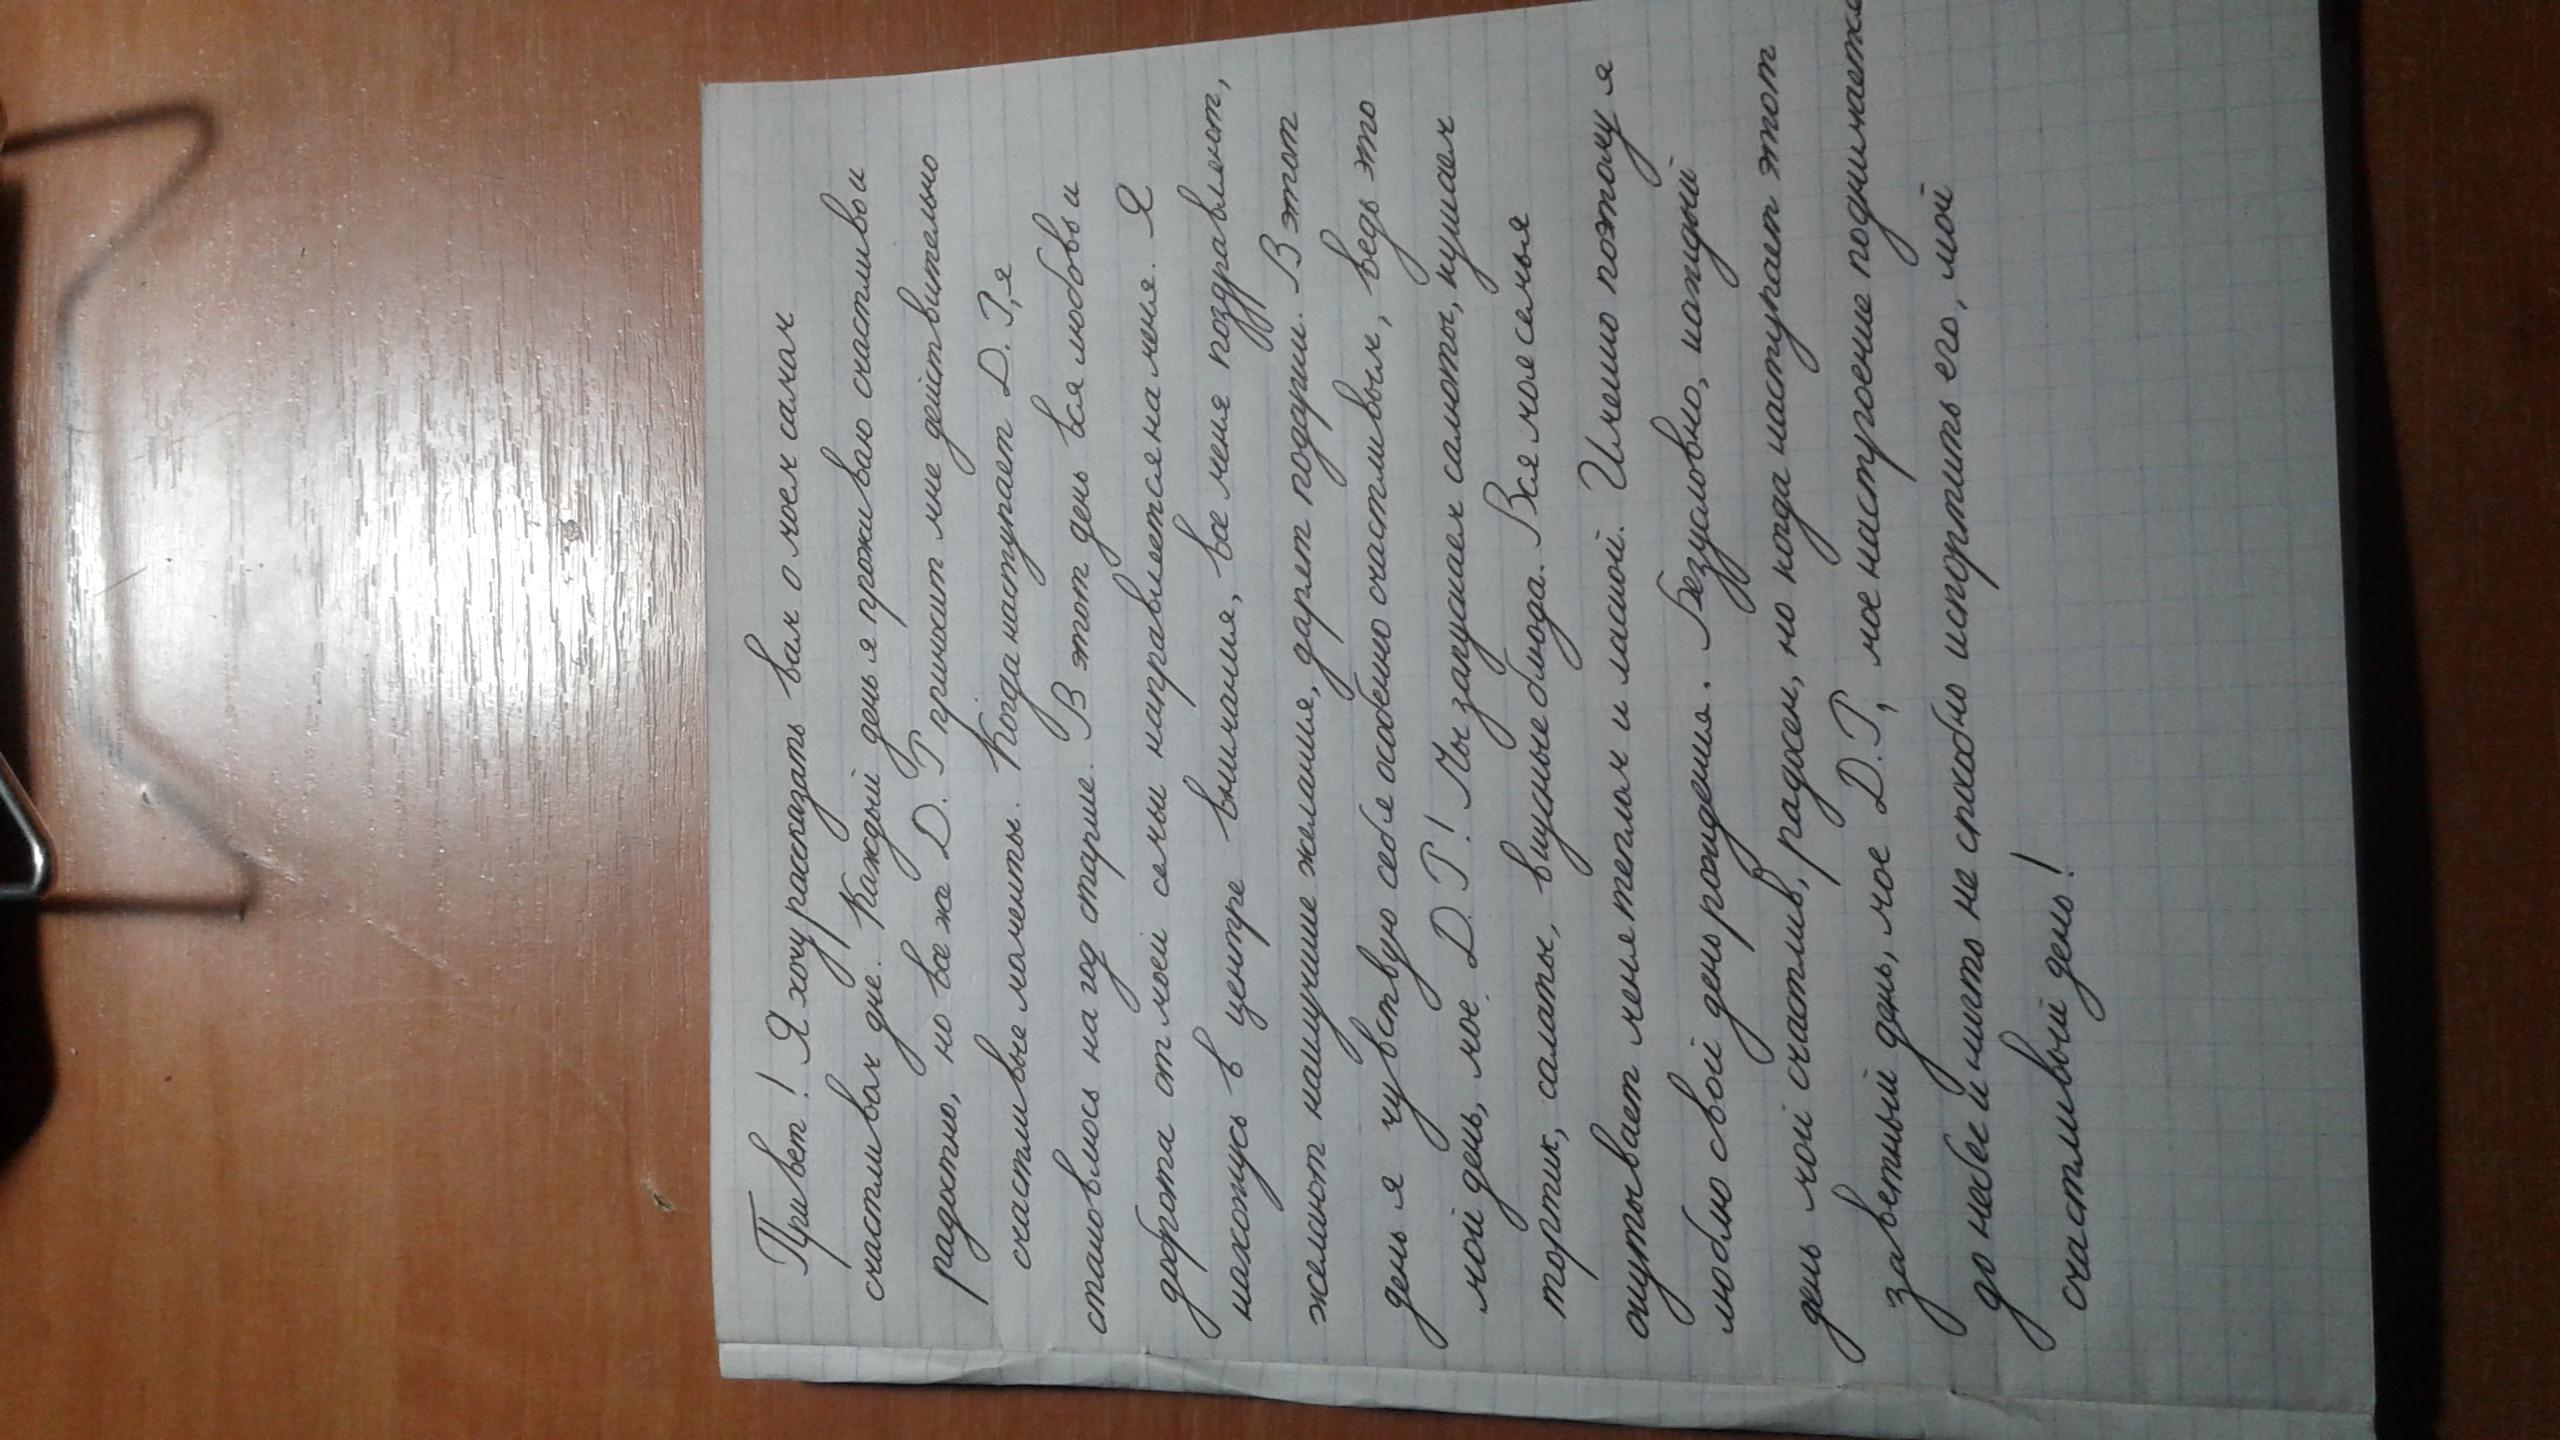 Привет! Я хочу рассказать вам о моем самом
счастливом дне. Каждый день я проживаю счастливо и
радостно, но все же Д. Р приносит мне действительно
счастливые моменты. Когда наступает Д. Р, я
становлюсь на год старше. В этот день вся любовь и
доброта от моей семьи направляется на меня. Я
нахожусь в центре внимания, все меня поздравляют,
желают наилучшие желания, дарят подарки. В этот
день я чувствую себя особено счастливым, ведь это
мой день, мое Д. Р! Мы запускаем салюты, кушаем
тортик, салаты, вкусные блюда. Вся моя семья
окутывает меня теплом и лаской. Именно поэтому я
люблю свой день рождения. Безусловно, каждый
день мой счастлив, радосен, но когда наступает этот
заветный день, мое Д. Р, мое настроение поднимаетсе
до небес и никто не способно испортить его, мой
счастливый день!